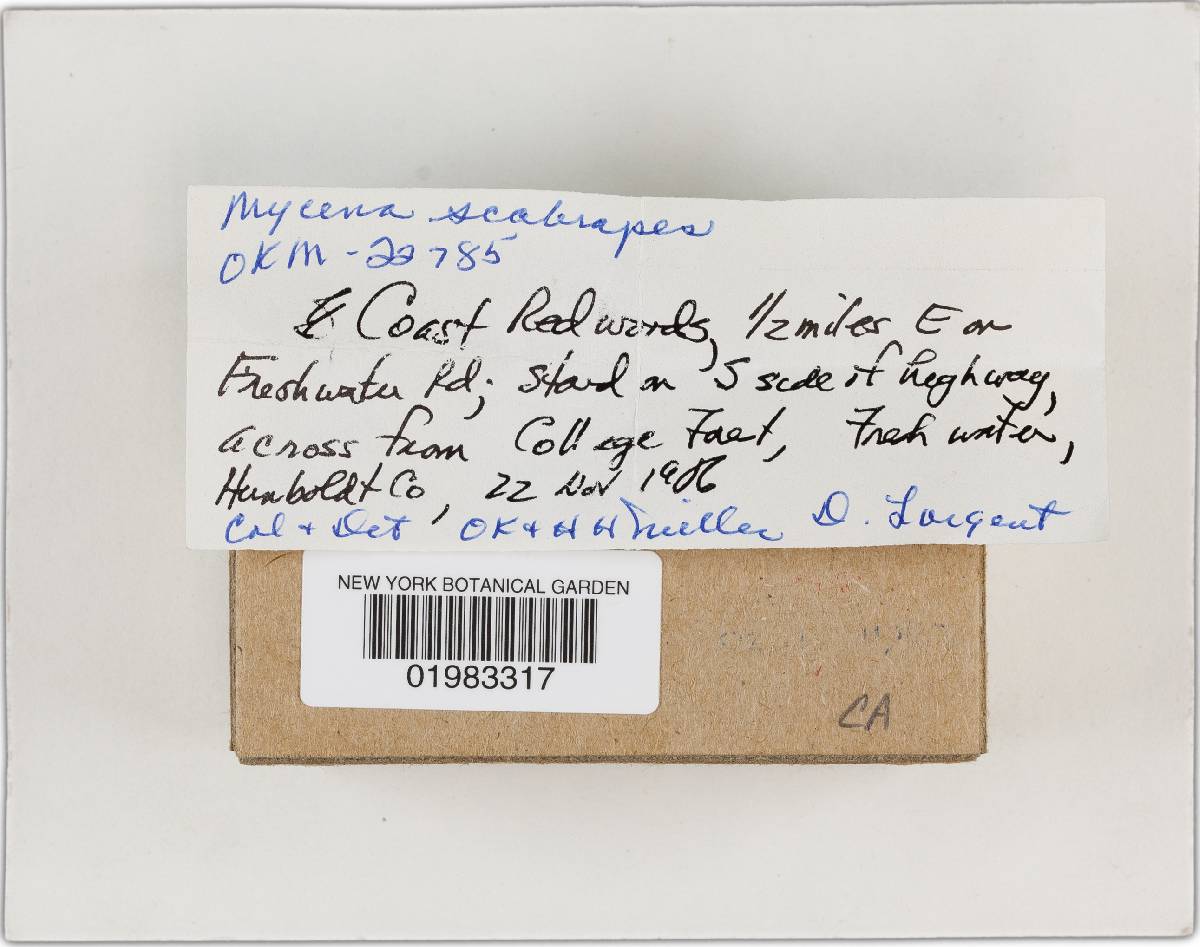 Mycena scabrapes
OKM-22785
Coast Redwoods, 1/2 miles E on
Freshwater Rd; stand on S side of highway,
across from College Forest, Freshwater,
Humboldt Co, 22 Nov 1986
Col + Det OK + HH Miller D. Largent
NEW YORK BOTANICAL GARDEN
01983317
CA